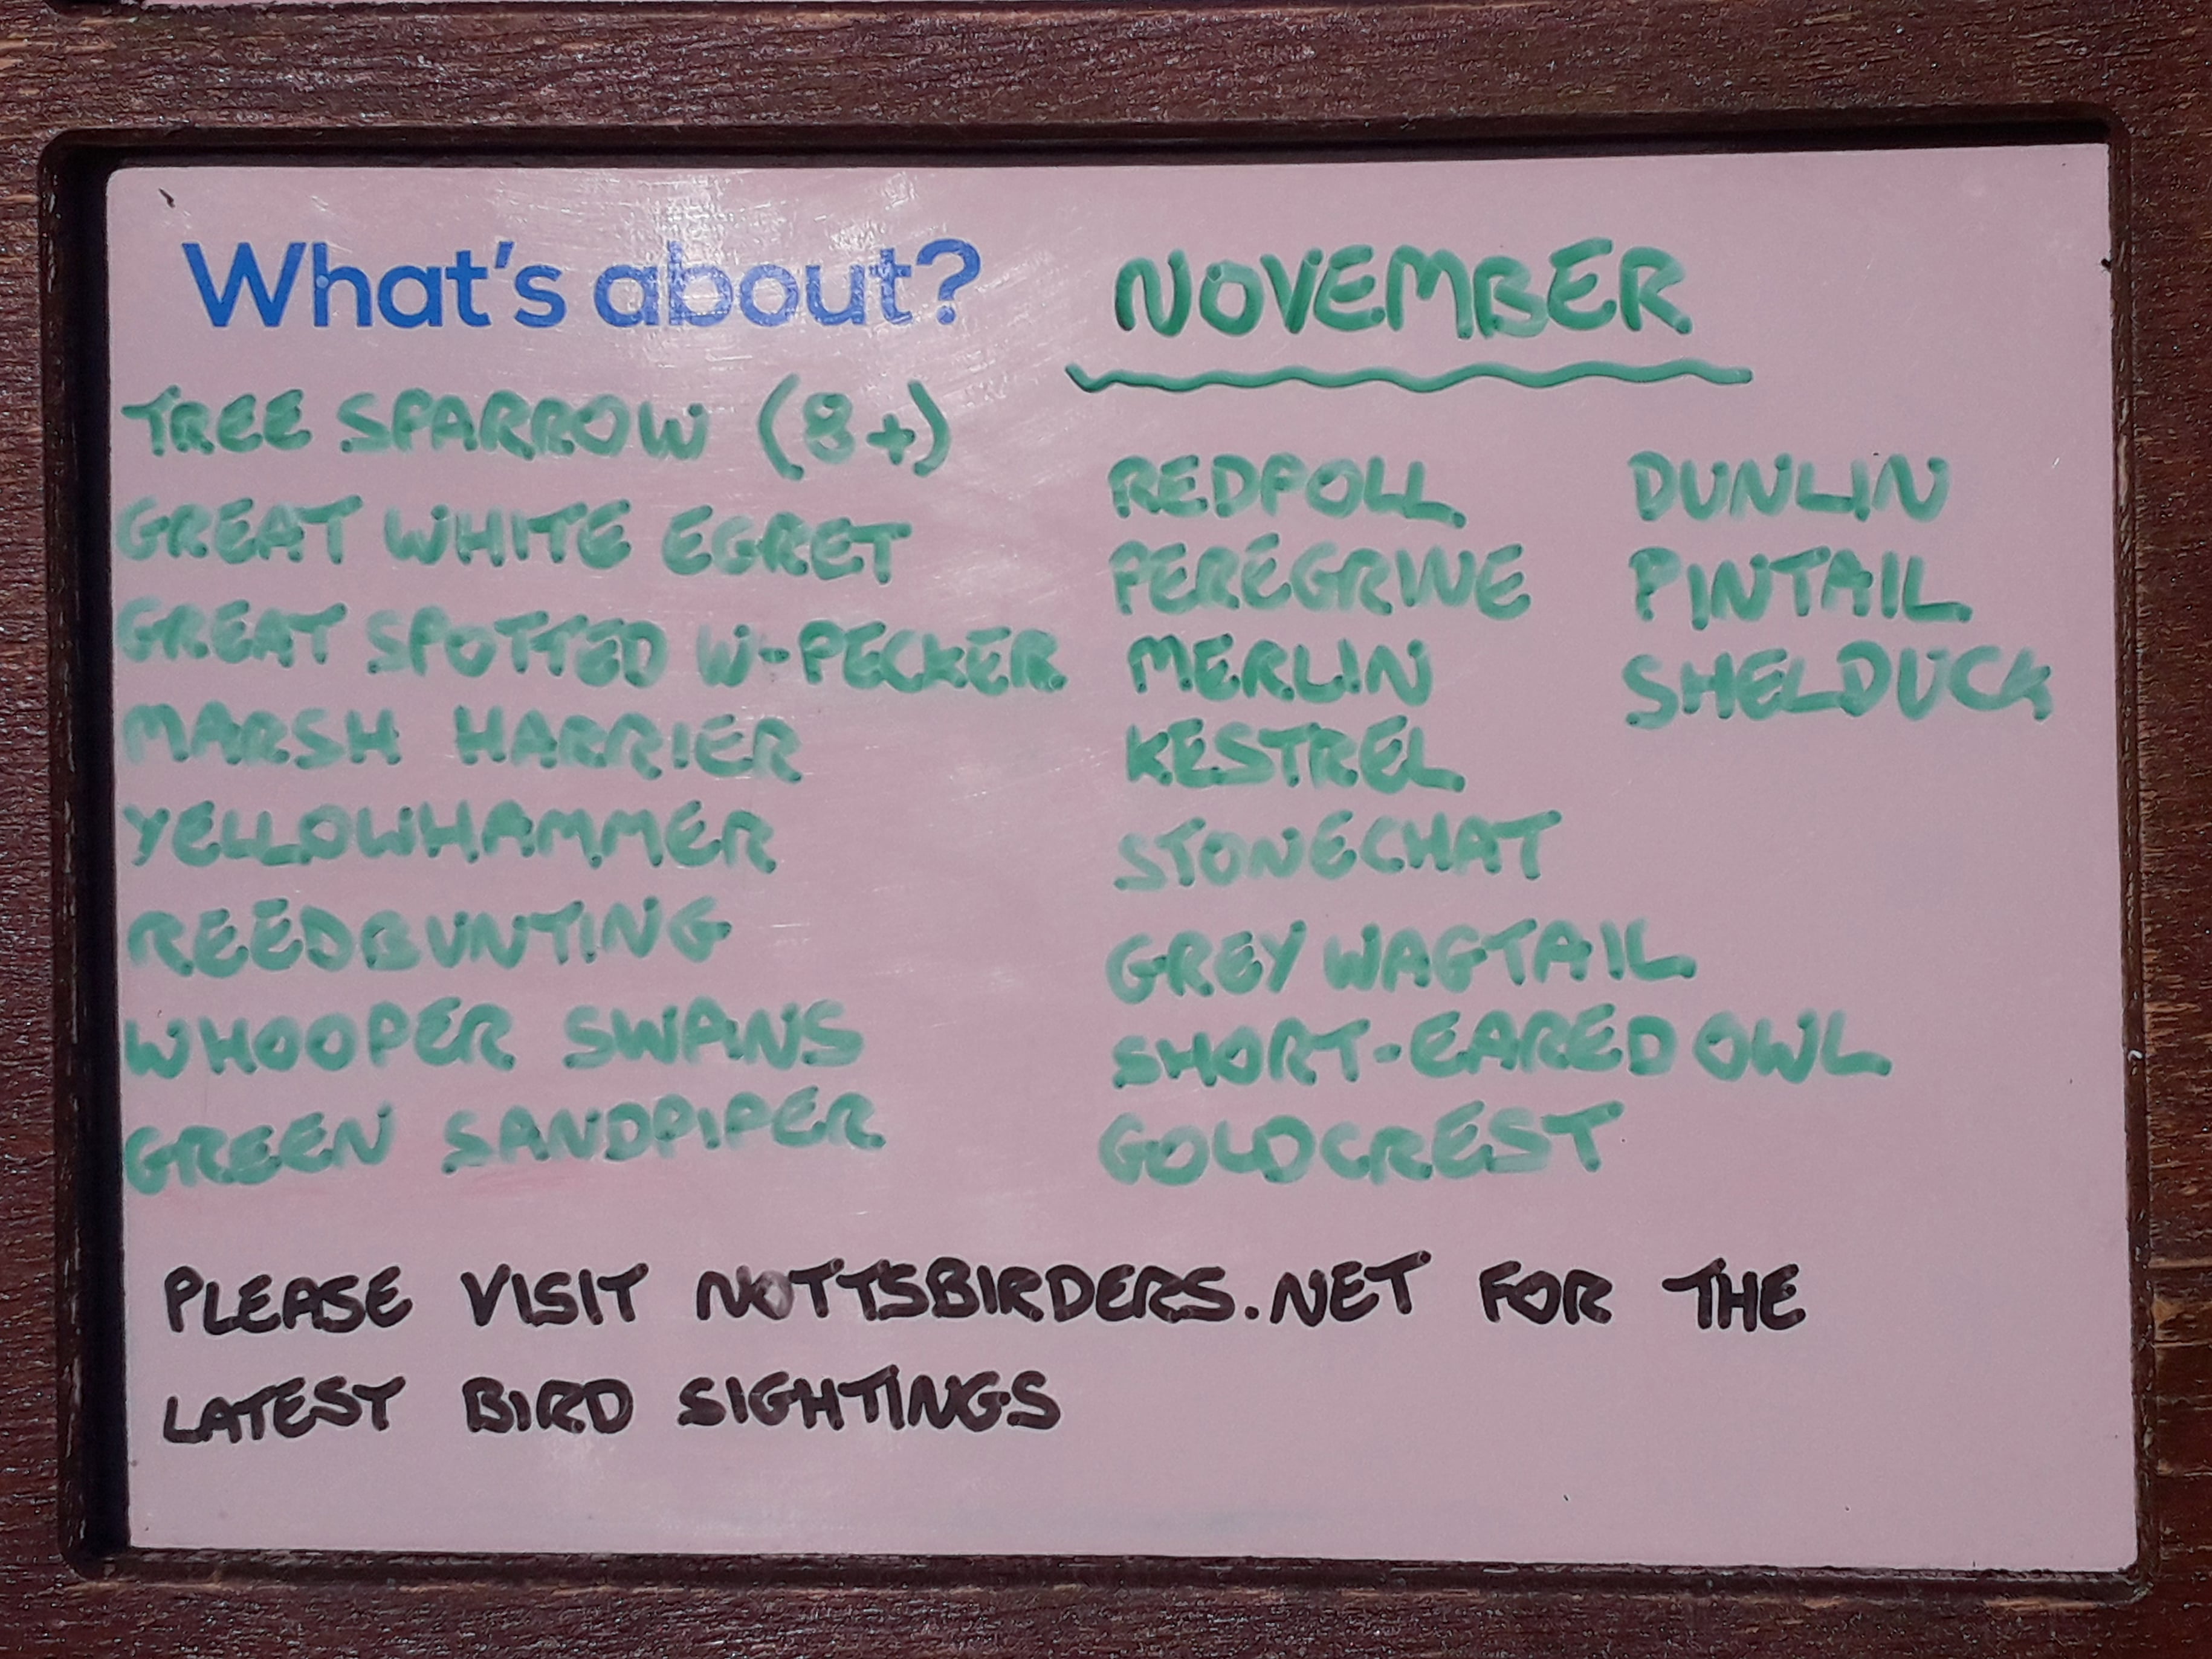 What's about?
NOVEMBER
TREE SPARROW (8+)
GREAT WHITE EGRET
GREAT SPOTTED W-PECKER
MARSH HARRIER
YELLOWHAMMER
REEDBUNTING
WHOOPER SWANS
GREEN SANDPIPER
REDPOLL
PEREGRINE
MERLIN
KESTREL
STONECHAT
GREY WAGTAIL
SHORT-EARED OWL
GOLDCREST
DUNLIN
PINTAIL
SHELDUCK
PLEASE VISIT NOTTSBIRDERS.NET FOR THE
LATEST BIRD SIGHTINGS